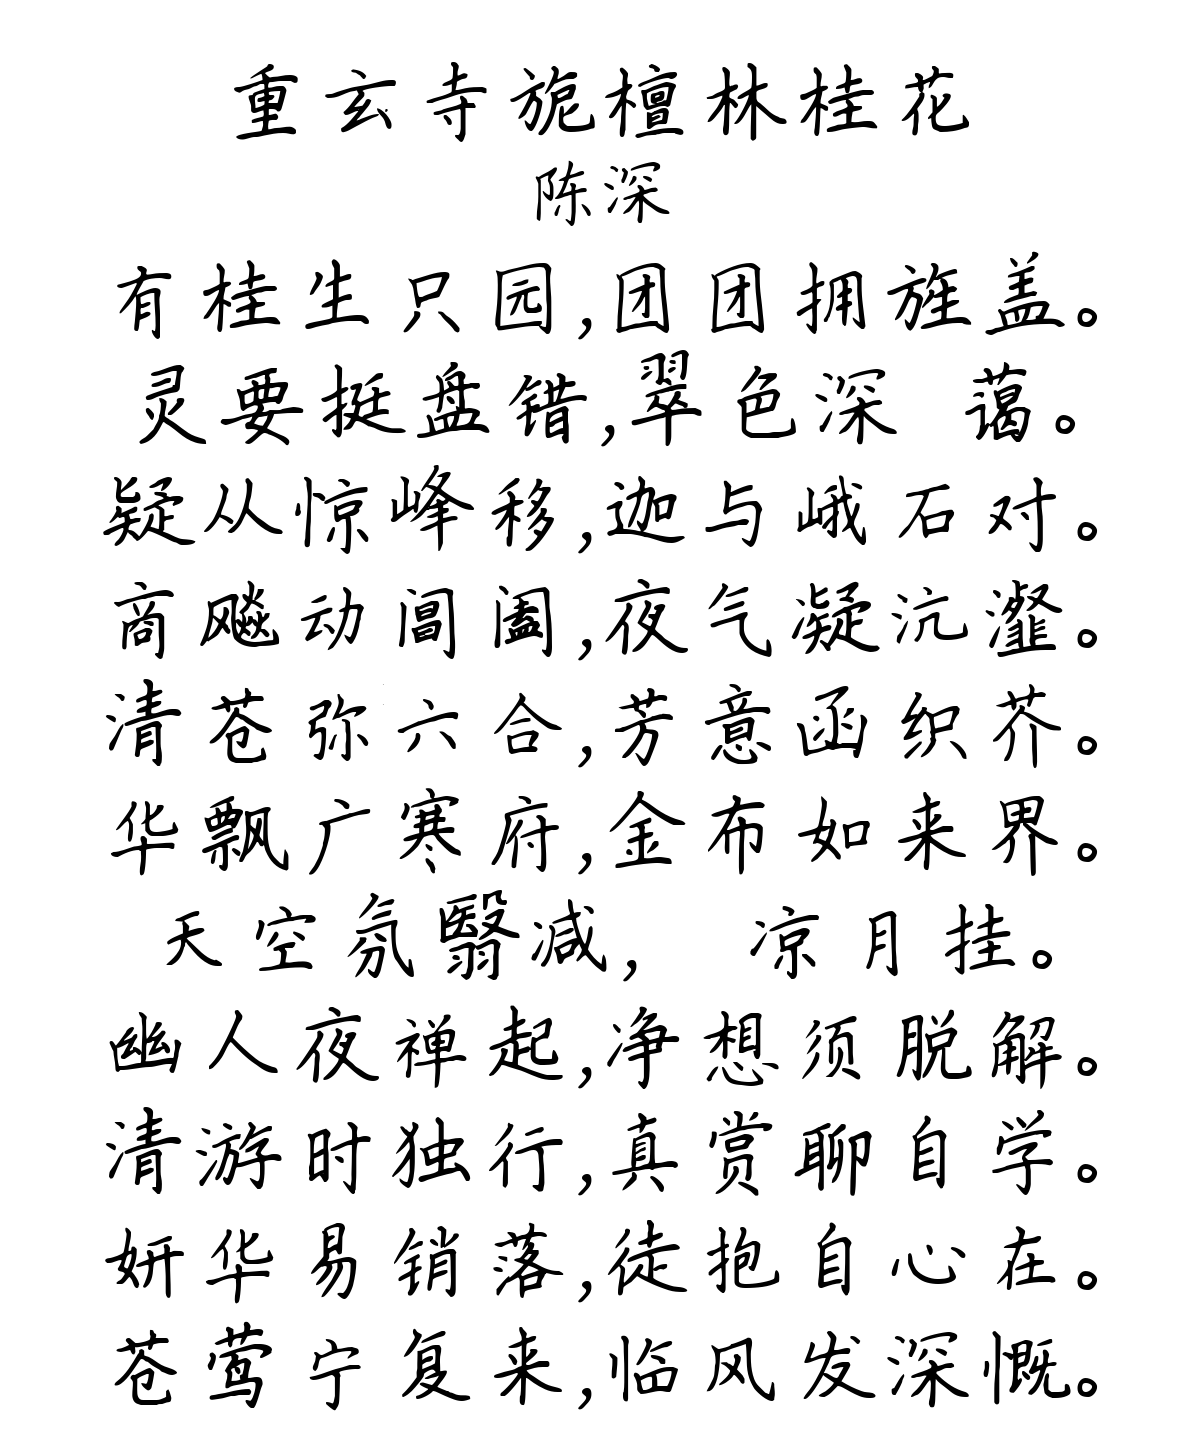 重玄寺旎檀林桂花
陈深
有桂生只园,团团拥旌盖。
灵要挺盘错,翠色深 蔼。
疑从惊峰移,迦与峨石对。
商飚动阊阖,夜气凝沆瀣。
清苍弥六合,芳意函织芥。
华飘广寒府,金布如来界。
天空氛翳减, 凉月挂。
幽人夜禅起,净想须脱解。
清游时独行,真赏聊自学。
妍华易销落,徒抱自心在。
苍莺宁复来,临风发深慨。